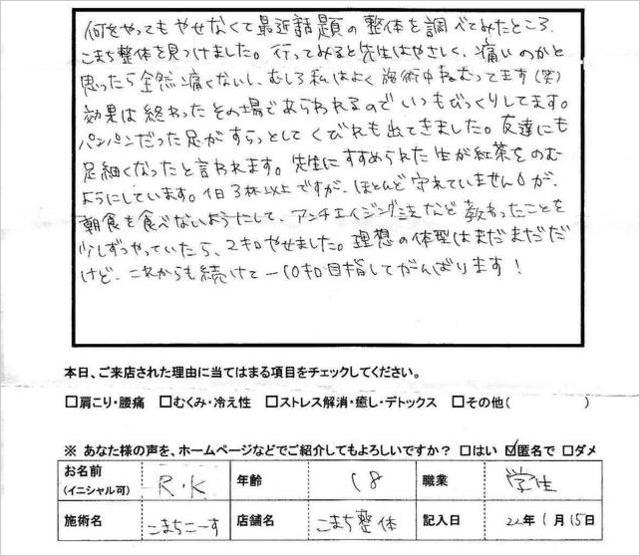 何をやってもやせなくて最近話題の整体を調べてみたところ、
こまち整体を見つけました。行ってみると先生はやさしく、痛いのかと
思ったら全然痛くないし、むしろ私はよく施術中ねむってます(笑)
効果は終わったその場であらわれるのでいつもびっくりしてます。
パンパンだった足がすらっとしてくびれも出てきました。友達にも
足細くなったと言われます。先生にすすめられた生が紅茶をのむ
ようにしています。1日3杯以上ですが、ほとんど守れていませんが、
朝食を食べないようにして、アンチエイジング法など教わったことを
少しずつやっていたら、2キロやせました。理想の体型はまだまだだ
けど、これからも続けて-10キロ目指してがんばります!
本日、ご来店された理由に当てはまる項目をチェックしてください。
□肩こり・腰痛 □むくみ・冷え性 □ストレス解消・癒し・デトックス □その他( )
※ あなた様の声を、ホームページなどでご紹介してもよろしいですか? □はい ☑匿名で □ダメ
お名前(イニシャル可) R.K 年齢 18 職業 学生
施術名 こまちこーす 店舗名 こまち整体 記入日 22年1月15日